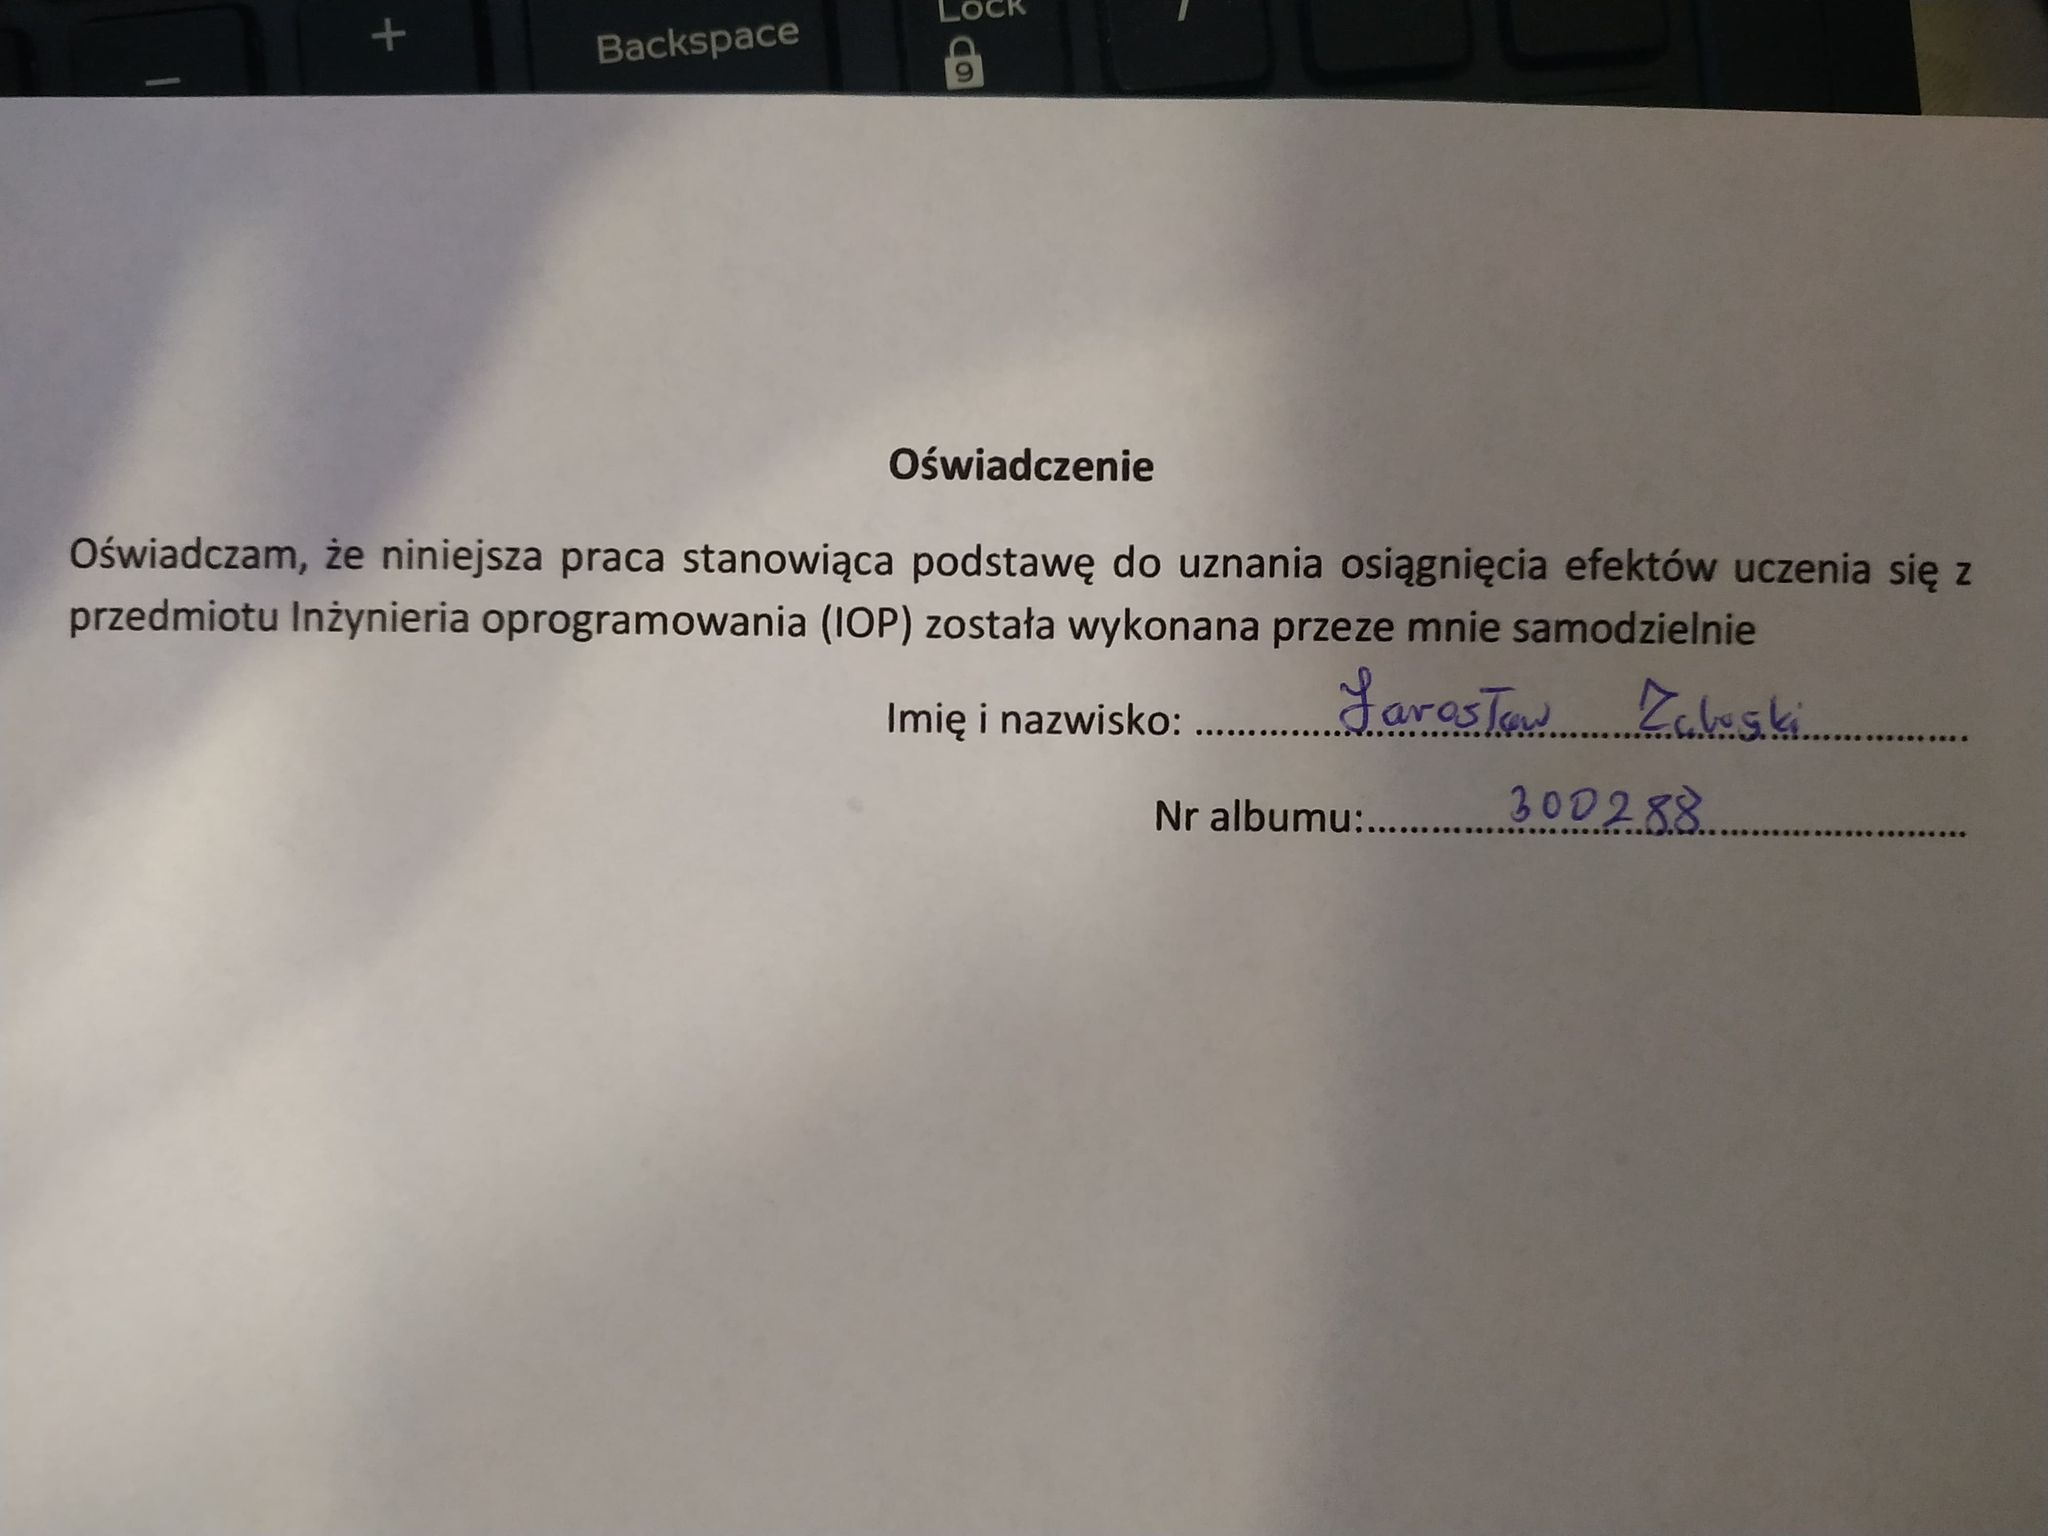 +
_
Backspace
Lock
9
/
Oświadczenie
Oświadczam, że niniejsza praca stanowiąca podstawę do uznania osiągnięcia efektów uczenia się z
przedmiotu Inżynieria oprogramowania (IOP) została wykonana przeze mnie samodzielnie
Imię i nazwisko: Jarosław
Nr albumu: 300288